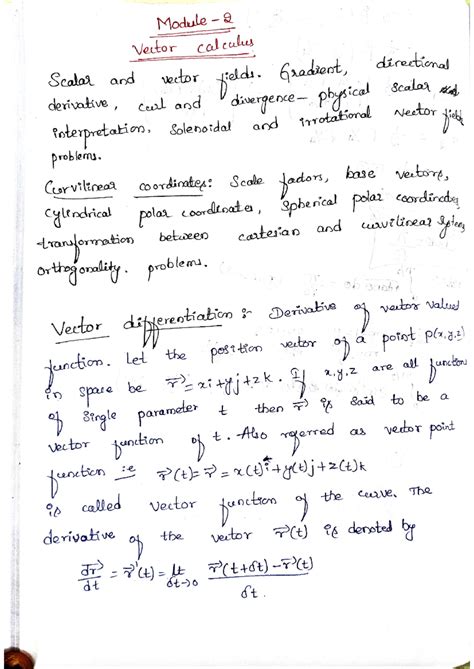 Module-2
Vector calculus
Scalar and vector fields. Gradient, directional
derivative, curl and divergence- physical scalar
interpretation, Solenoidal and irrotational vector field
problems.
Curvilinear coordinates: Scale factors, base vectors,
Cylindrical polar coordinates, Spherical polar coordinates,
transformation between cartesian and curvilinear systems
orthogonality. problems.
Vector differentiation :- Derivative of vector valued
function. Let the position vector of a point P(x,y,z)
in space be r⃗ = xi+yj+zk. If x,y,z are all function
of single parameter t then r⃗ is said to be a
vector function of t. Also referred as vector point
function i.e r⃗(t)=r⃗ = x(t)i+y(t)j+z(t)k
is called vector function of the curve. The
derivative of the vector r⃗(t) is denoted by
dr⃗/dt = r⃗'(t) = lt δt→0 r⃗(t+δt)-r⃗(t)/δt.